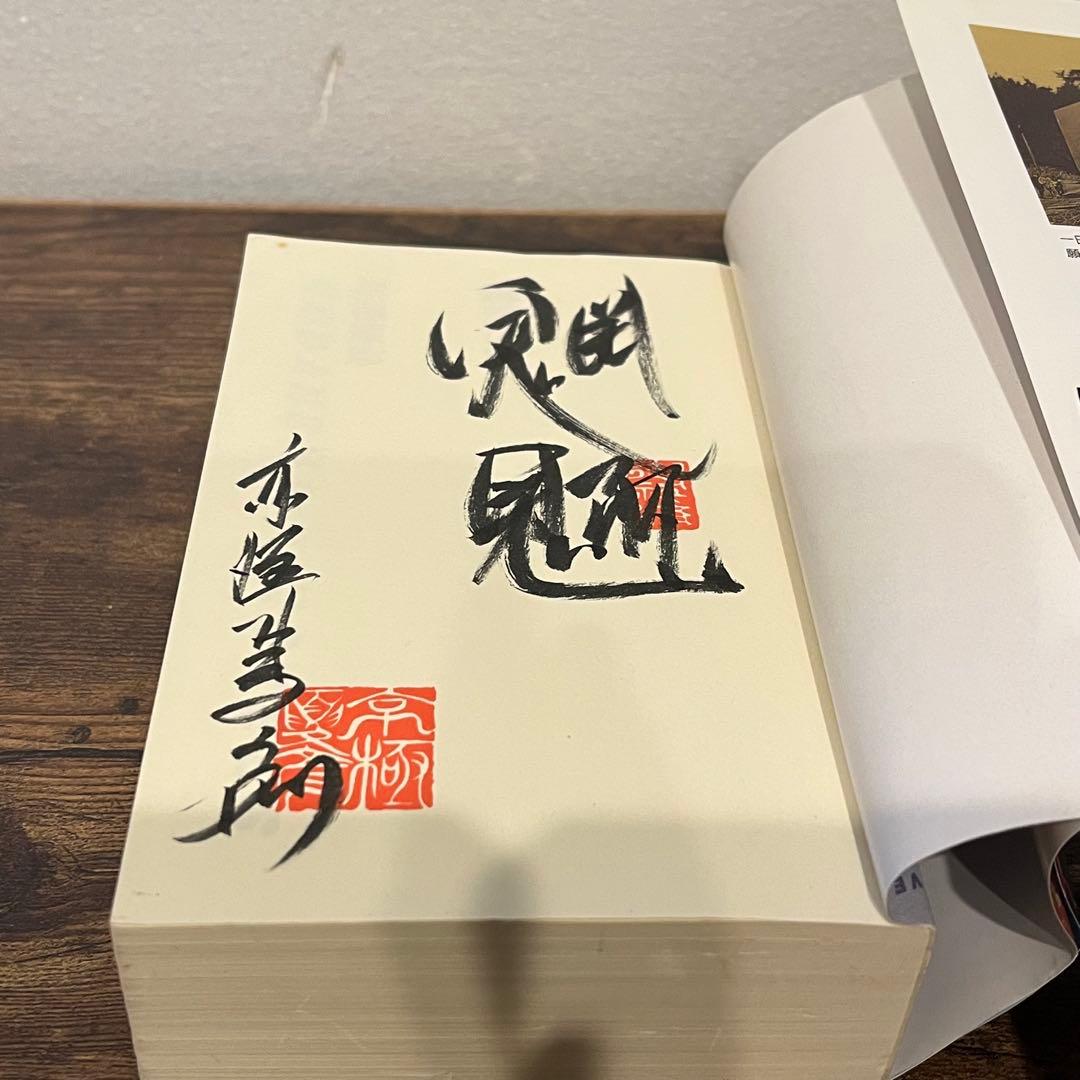 魍魎
京極夏彦
京極
夏彦